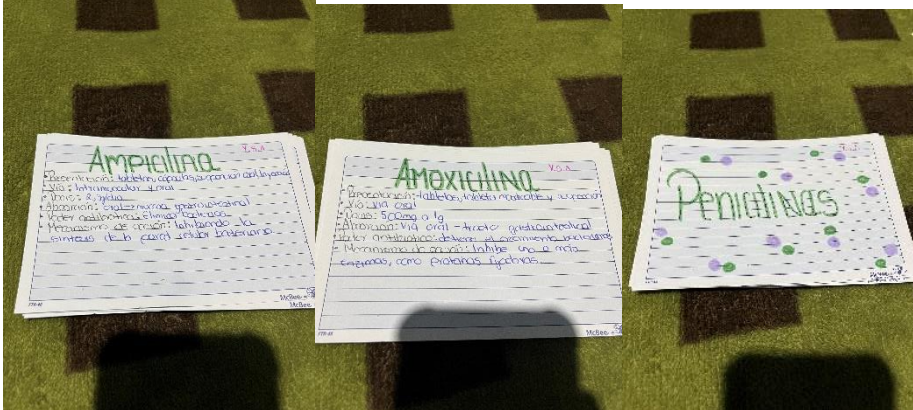 Ampicilina
Y.S.A
Presentación: tabletas, capsulas, suspension oral
Vía: Intramuscular y oral
Dosis:
Absorción: Oral
Poder antibiotico: eliminar bacterias
Mecanismo de acción: Inhibiendo la
sintesis de la pared celular bacteriana
McBee
McBee
Amoxicilina
Y.S.A
Presentación: tabletas, tableta masticable y suspensión
Vía: Vía oral
Dosis: 500mg a 1g
Absorción: Vía oral - tracto gastrointestinal
Poder antibiotico: detiene el crecimiento
Mecanismo de acción: Inhibe una o más
enzimas, como proteinas fijadoras
McBee
Penicilinas
McBee